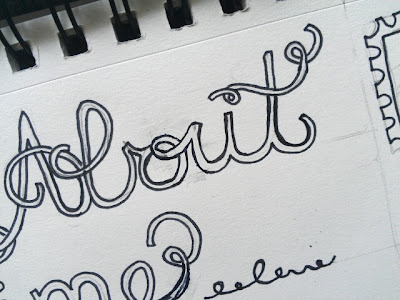 About
me